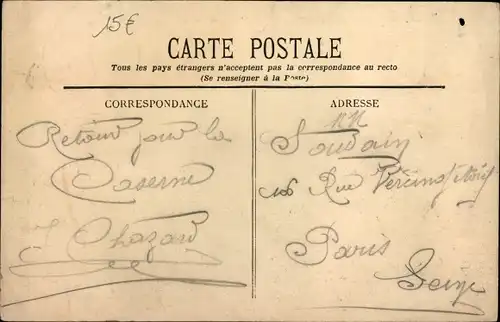 15€
CARTE POSTALE
Tous les pays étrangers n'acceptent pas la correspondance au recto
(Se renseigner à la Poste)
CORRESPONDANCE
Retour pour la
Caserne
J Chazard
ADRESSE
Soudain
Rue Vercingétorix
Paris
Seine